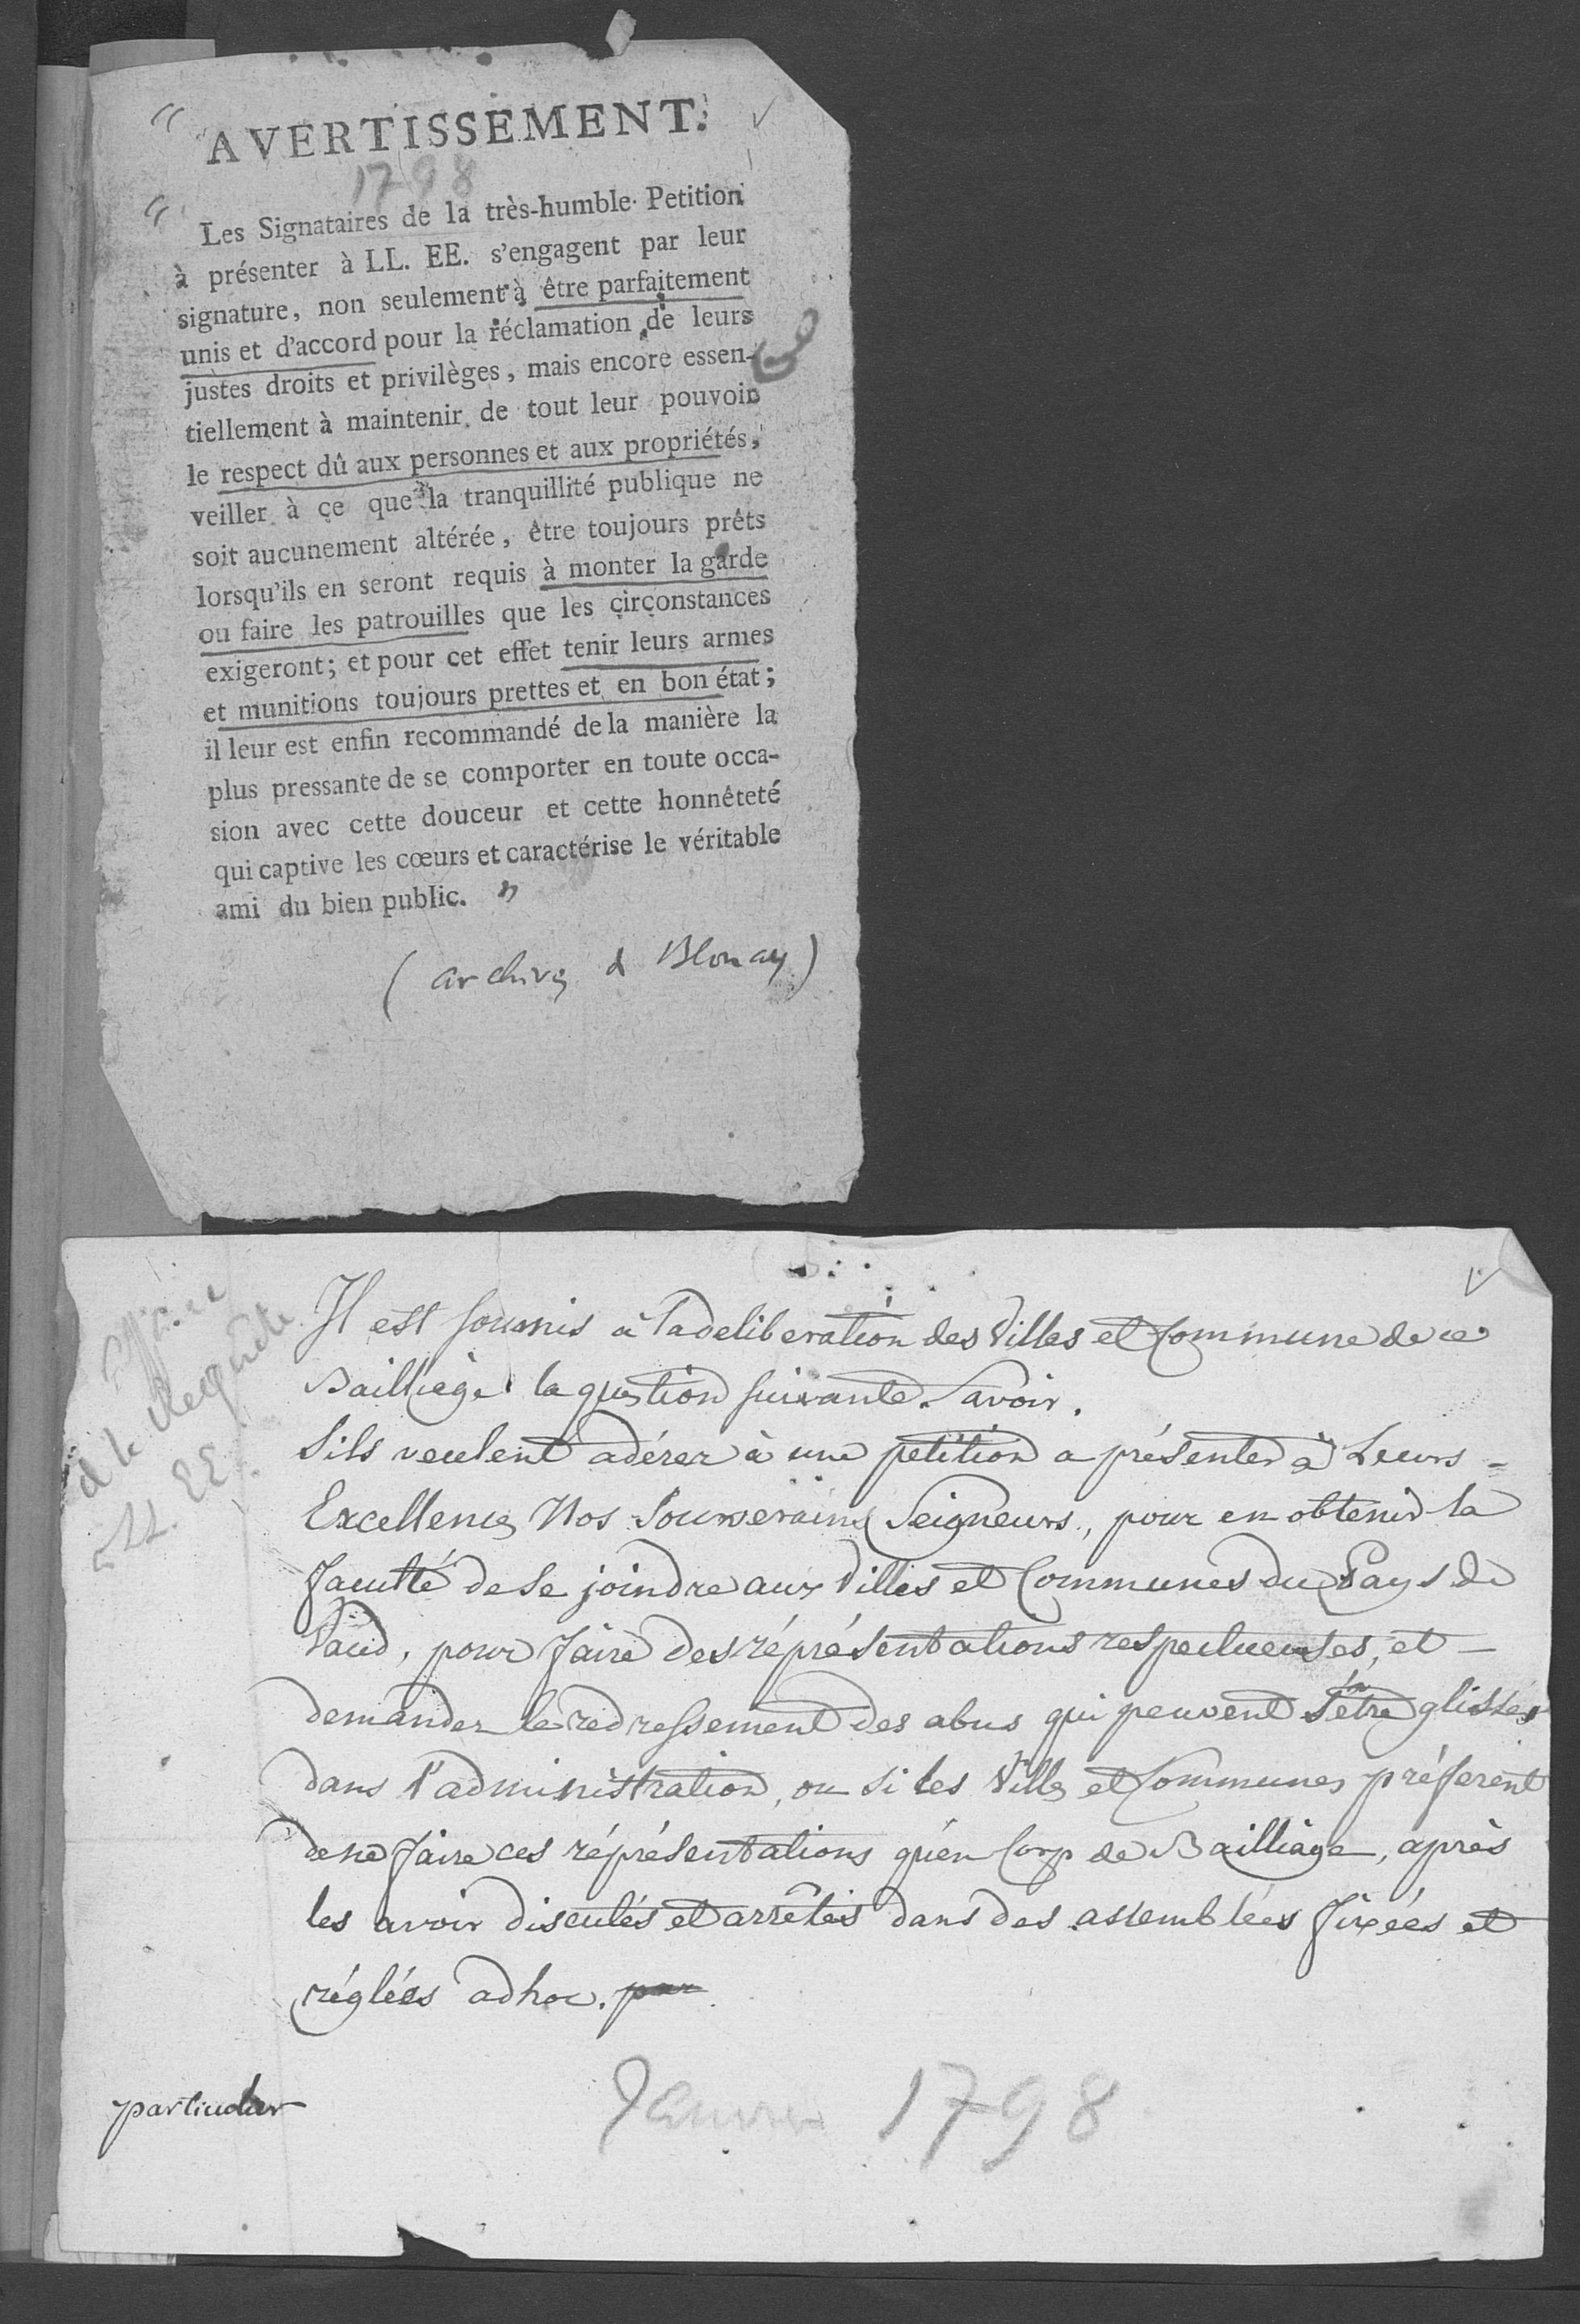 AVERTISSEMENT.
1798
" Les Signataires de la très-humble Petition
à présenter à LL. EE. s'engagent par leur
signature, non seulement à être parfaitement
unis et d'accord pour la réclamation de leurs
justes droits et privilèges, mais encore essen-
tiellement à maintenir de tout leur pouvoir
le respect dû aux personnes et aux propriétés,
veiller à ce que la tranquillité publique ne
soit aucunement altérée, être toujours prêts
lorsqu'ils en seront requis à monter la garde
ou faire les patrouilles que les circonstances
exigeront; et pour cet effet tenir leurs armes
et munitions toujours prettes et en bon état;
il leur est enfin recommandé de la manière la
plus pressante de se comporter en toute occa-
sion avec cette douceur et cette honnêteté
qui captive les cœurs et caractérise le véritable
ami du bien public. "
(archives d Blonay)
d la Requête
LL. EE.
Il est soumis à la deliberation des Villes et Commune de ce
Bailliage la question suivante. Savoir.
Sils veulent adérer à une petition a présenter à Leurs
Excellences Nos Souverains Seigneurs, pour en obtenir la
faculté de se joindre aux Villes et Communes du Pays de
Vaud, pour faire des réprésentations respectueuses, et
demander le redressement des abus qui peuvent s'être glissés
dans l'administration, ou si les Villes et Communes préferent
de ne faire ces réprésentations qu'en Corp de Bailliage, après
les avoir discutés et arrêtés dans des assemblées fixées et
réglées adhoc. par
particulier
Janvier 1798